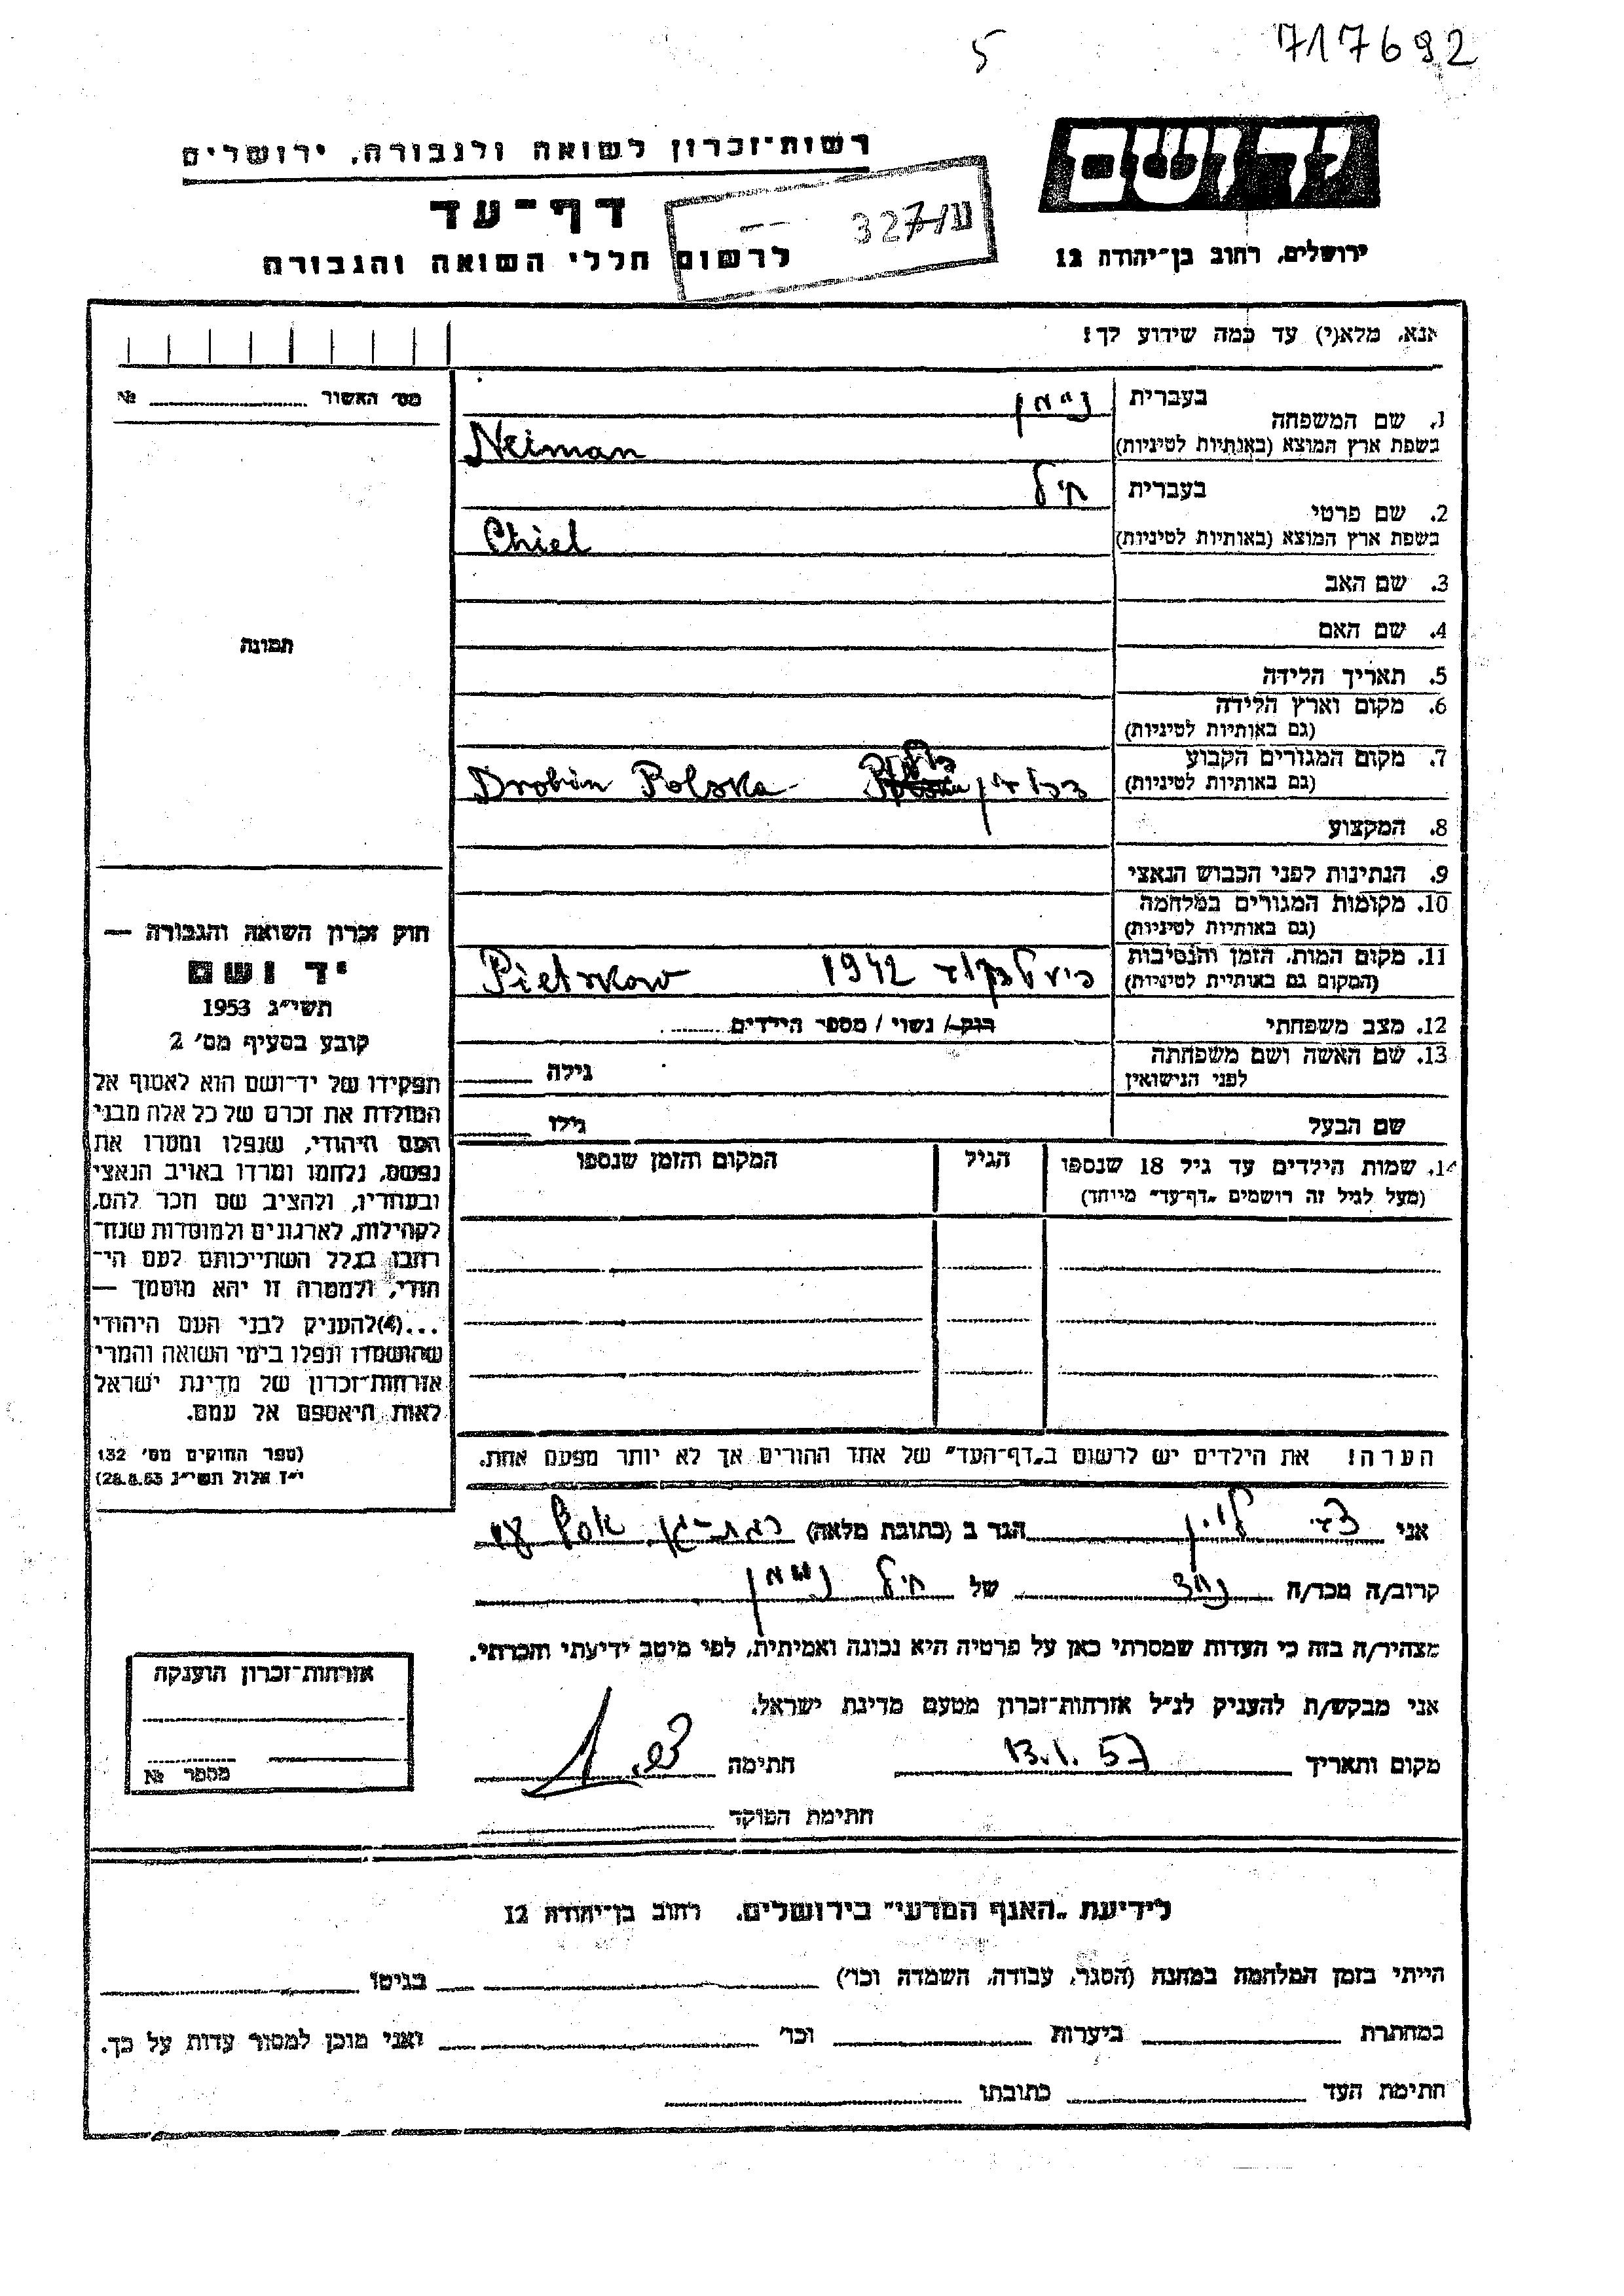 5 717692
יד ושם
רשות־זכרון לשואה ולגבורה, ירושלים
דף־עד
לרשום חללי השואה והגבורה
327
ירושלים, רחוב בן־יהודה 12
אנא, מלא(י) עד כמה שידוע לך!
מס׳ האשור № 
1. שם המשפחה
בעברית ניימן
בשפת ארץ המוצא (באותיות לטיניות) Neiman
2. שם פרטי
בעברית חיל
בשפת ארץ המוצא (באותיות לטיניות) Chiel
3. שם האב
4. שם האם
5. תאריך הלידה
6. מקום וארץ הלידה
(גם באותיות לטיניות)
7. מקום המגורים הקבוע
(גם באותיות לטיניות) Drobin Polska
8. המקצוע
9. הנתינות לפני הכבוש הנאצי
10. מקומות המגורים במלחמה
(גם באותיות לטיניות)
11. מקום המות, הזמן והנסיבות
(המקום גם באותיות לטיניות) 1942 Pietrkow
12. מצב משפחתי רוק / נשוי / מספר הילדים
13. שם האשה ושם משפחתה
לפני הנישואין
גילה
שם הבעל גילו
14. שמות הילדים עד גיל 18 שנספו הגיל המקום והזמן שנספו
(מעל לגיל זה רושמים „דף־עד״ מיוחד)
הערה! את הילדים יש לרשום ב„דף־העד״ של אחד ההורים אך לא יותר מפעם אחת.
תמונה
חוק זכרון השואה והגבורה —
יד ושם
תשי״ג 1953
קובע בסעיף מס׳ 2
תפקידו של יד־ושם הוא לאסוף אל
המולדת את זכרם של כל אלה מבני
העם היהודי, שנפלו ומסרו את
נפשם, נלחמו ומרדו באויב הנאצי
ובעוזריו, ולהציב שם וזכר להם,
לקהילות, לארגונים ולמוסדות שנח־
רבו בגלל השתייכותם לעם הי־
הודי, ולמטרה זו יהא מוסמך —
...(4) להעניק לבני העם היהודי
שהושמדו ונפלו בימי השואה והמרי
אזרחות־זכרון של מדינת ישראל
לאות היאספם אל עמם.
(ספר החוקים מס׳ 132
י״ז אלול תשי״ג 28.8.53)
אני לוין הגר ב (כתובת מלאה) רמת־גן
קרוב/ה מכר/ה של חיל ניימן
מצהיר/ה בזה כי העדות שמסרתי כאן על פרטיה היא נכונה ואמיתית, לפי מיטב ידיעתי והכרתי.
אני מבקש/ת להעניק לנ״ל אזרחות־זכרון מטעם מדינת ישראל.
מקום ותאריך 13.1.57 חתימה
חתימת הפוקד
אזרחות־זכרון הוענקה
מספר №
לידיעת „האגף המדעי״ בירושלים, רחוב בן־יהודה 12
הייתי בזמן המלחמה במחנה (הסגר, עבודה, השמדה וכו׳) בגיטו
במחתרת ביערות וכו׳ ואני מוכן למסור עדות על כך.
חתימת העד כתובתו